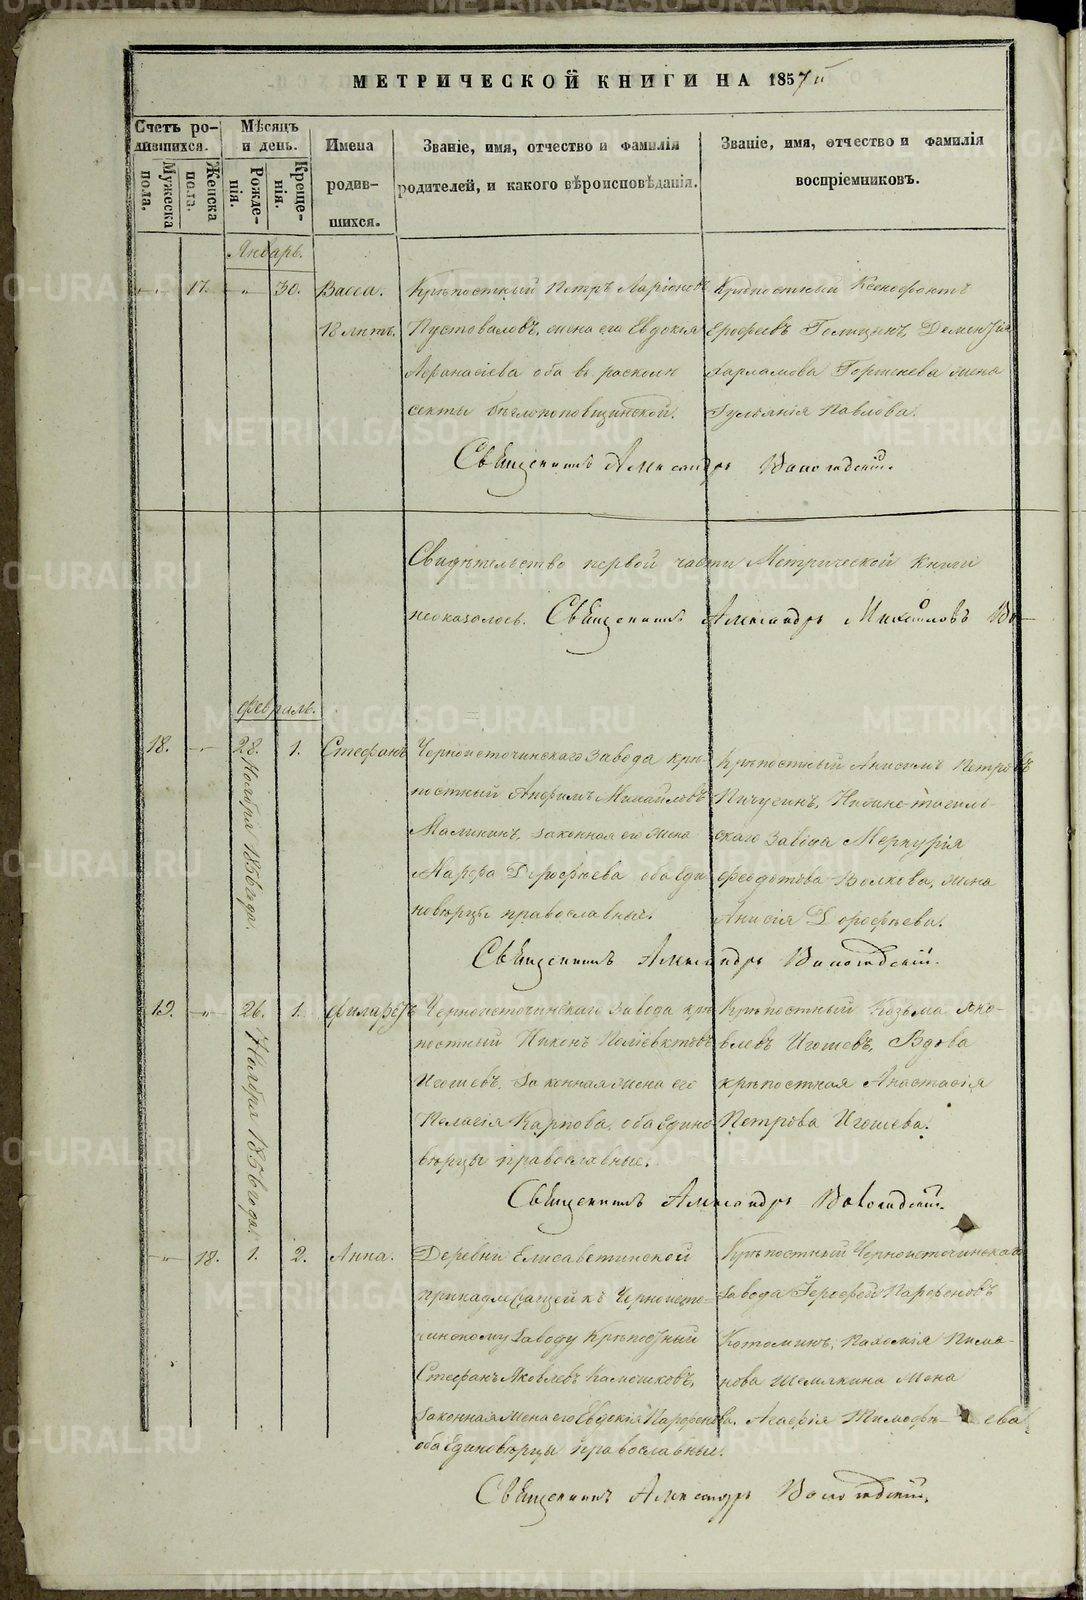 МЕТРИЧЕСКОЙ КНИГИ НА 1857й
Счетъ ро-
дившихся.
Мужеска
пола.
Женска
пола.
Мѣсяцъ
и день.
Рожде-
нія.
Креще-
нія.
Имена
родив-
шихся.
Званіе, имя, отчество и фамилія
родителей, и какого вѣроисповѣданія.
Званіе, имя, отчество и фамилія
воспріемниковъ.
Январь.
17. " 30. Васса.
12 лѣтъ.
Крѣпостный Петръ Ларіоновъ
Пустоваловъ, жена его Евдокія
Афанасіева оба въ расколѣ
секты бѣглопоповщинской.
Крѣпостный Ксенофонтъ
Ерофеевъ Голицынъ, Дементія
Харламова Горшенева жена
Гуліанія Павлова.
Священникъ Александръ Вологодскій.
Свидѣтельство первой части Метрической Книги
неоказалось. Священникъ Александръ Михайловъ Во-
Февраль.
18. 28. 1. Стефанъ
Ноября 1856 года.
Черноисточинскаго завода крѣ-
постный Анфимъ Михайловъ
Малининъ, законная его жена
Марфа Дорофѣева оба еди-
новѣрцы православные.
Крѣпостный Анисимъ Петровъ
Пичугинъ, Нижне-тагиль-
скаго завода Меркурія
Феодотова Волкова, жена
Анисія Дорофѣева.
Священникъ Александръ Вологодскій.
19. " 26. 1. Филаретъ
Ноября 1856 года.
Черноисточинскаго завода крѣ-
постный Никонъ Поліевктовъ
Игошевъ, законная жена его
Пелагія Карпова, оба едино-
вѣрцы православные.
Крѣпостный Козьма Яко-
влевъ Игошевъ, Вдова
крѣпостная Анастасія
Петрова Игошева.
Священникъ Александръ Вологодскій.
" 18. 1. 2. Анна.
Деревни Елисаветинской
принадлежащей къ Черноисто-
чинскому заводу Крѣпостный
Стефанъ Яковлевъ Камешковъ,
законная жена его Евдокія Парфенова,
оба Единовѣрцы православные.
Крѣпостный Черноисточинскаго
завода Ерофей Парфеновъ
Котоминъ, Пахомія Пима-
нова Шемякина жена
Агафія Тимофѣева
Священникъ Александръ Вологодскій.
METRIKI.GASO-URAL.RU